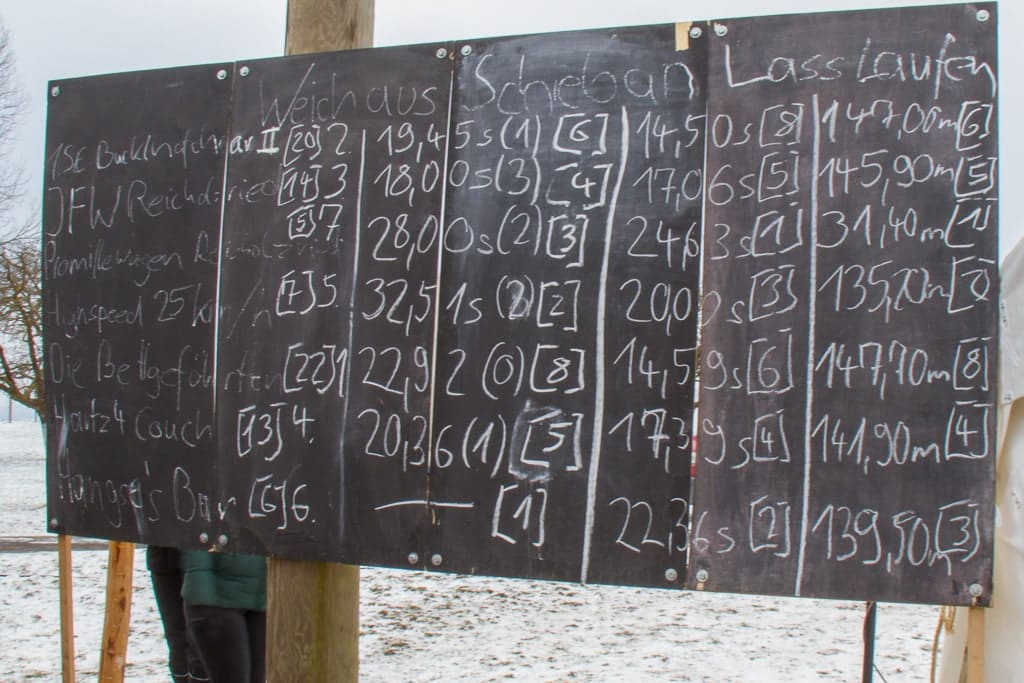 Weich aus Schieb an Lass Laufen
1SE II [20] 2. 19,45s (1) [6] 14,50s [8] 147,00m [6]
JFW Reichdsried [14] 3 18,00s (3) [4] 17,06s [5] 145,90m [5]
Promillewagen [5] 7 28,00s (2) [3] 24,63s [1] 31,40m [1]
Highspeed 25 km/h [7] 5. 32,51s [2] 20,00s [3] 135,70m [2]
Die Bettgefährten [22] 1 22,92 (0) [8] 14,59s [6] 147,70m [8]
Hartz 4 Couch [13] 4. 20,36 (1) [5] 17,39s [4] 141,90m [4]
Hangsa's Bar [6] 6. — [1] 22,36s [2] 139,50m [3]